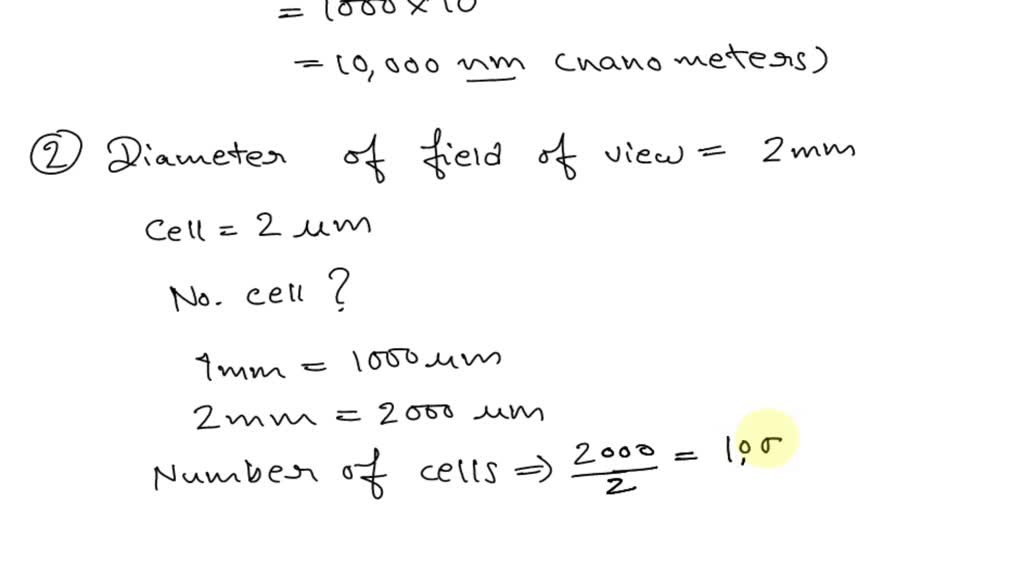 = 1000 × 10
= 10,000 nm (nanometers)
② Diameter of field of view = 2mm
Cell = 2 μm
No. cell ?
1mm = 1000 μm
2mm = 2000 μm
Number of cells ⇒ 2000/2 = 1,00